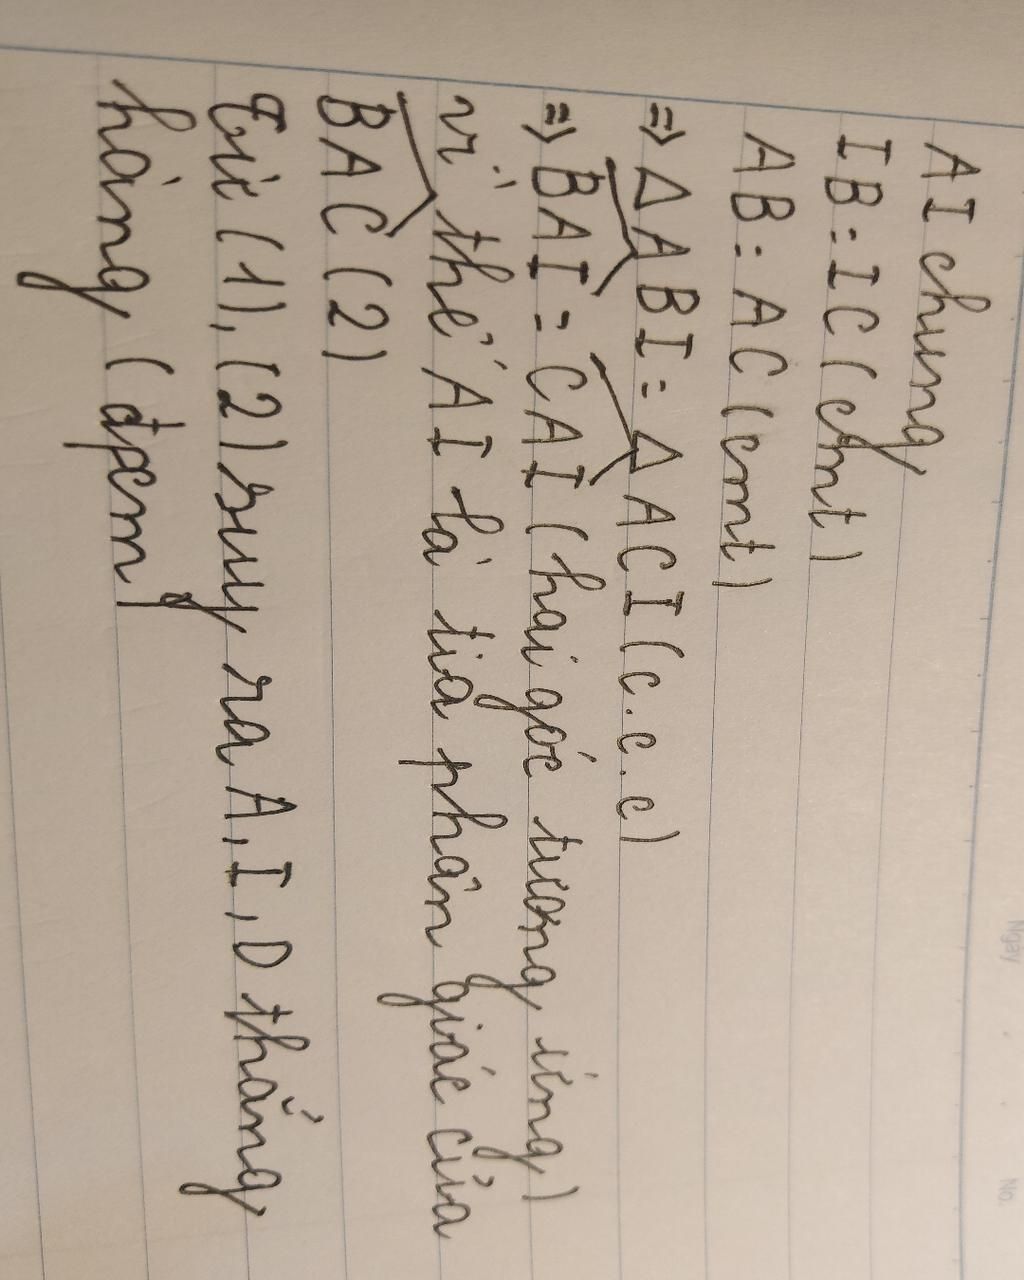 AI chung
IB = IC (cmt)
AB = AC (cmt)
=> Δ ABI = Δ ACI (c.c.c)
=> BAI = CAI (hai góc tương ứng)
vì thế AI là tia phân giác của
BAC (2)
Từ (1), (2) suy ra A, I, D thẳng
hàng (đpcm)
Ngày
No.